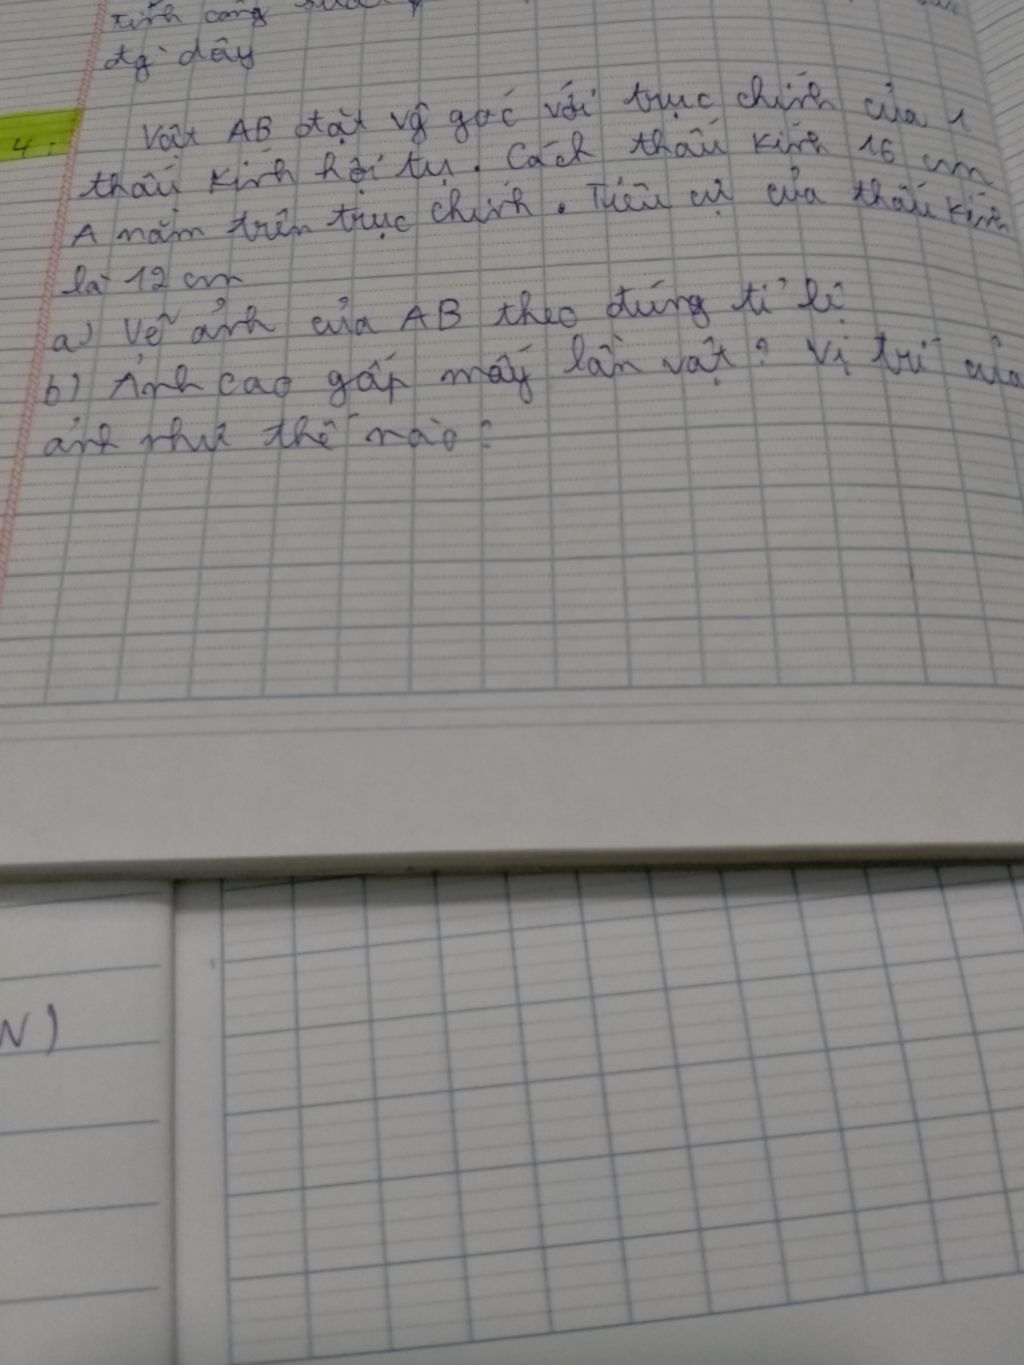 Tính công
dg dây
4: Vật AB đặt vg góc với trục chính của 1
thấu kính hội tụ. Cách thấu kính 16 cm
A nằm trên trục chính. Tiêu cự của thấu kính
là 12 cm
a) Vẽ ảnh của AB theo đúng tỉ lệ
b) Ảnh cao gấp mấy lần vật? Vị trí của
ảnh như thế nào?
N)